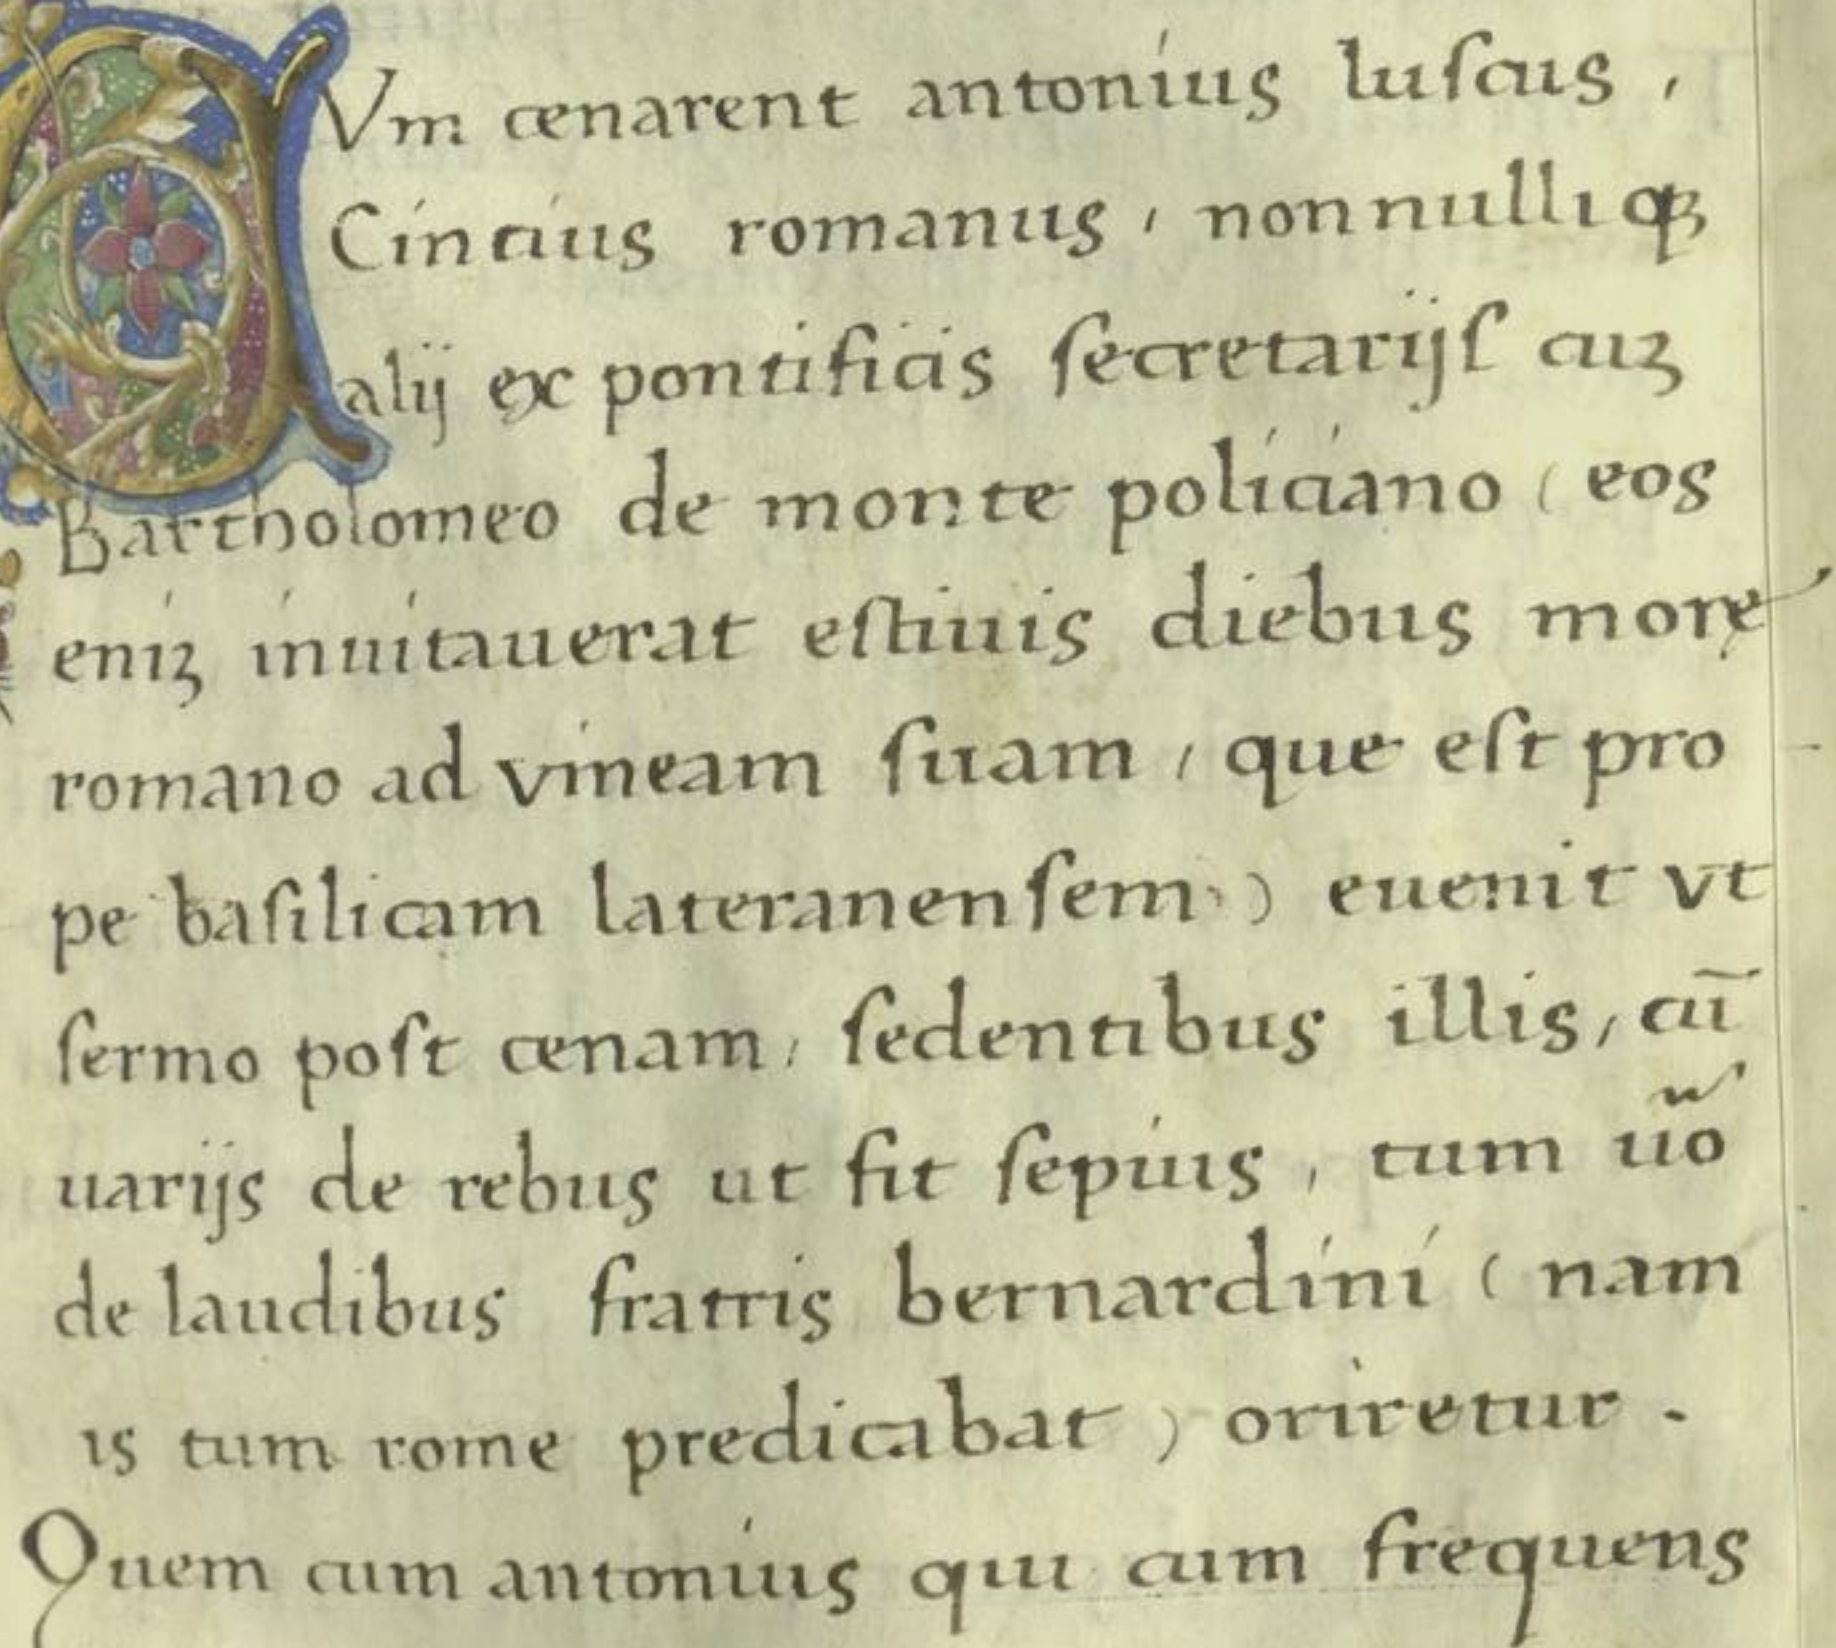 QVm cenarent antonius luſcus,
Cincius romanus, nonnulliqꝫ
alij ex pontificis ſecretarijſ cuꝫ
Bartholomeo de monte policiano (eos
eniꝫ inuitauerat eſtiuis diebus more
romano ad vineam ſuam, que eſt pro
pe baſilicam lateranenſem) euenit vt
ſermo poſt cenam, ſedentibus illis, cū
uarijs de rebus ut fit ſepius, tum uo̅
de laudibus fratris bernardini (nam
is tum rome predicabat) oriretur.
Quem cum antonius qui eum frequens